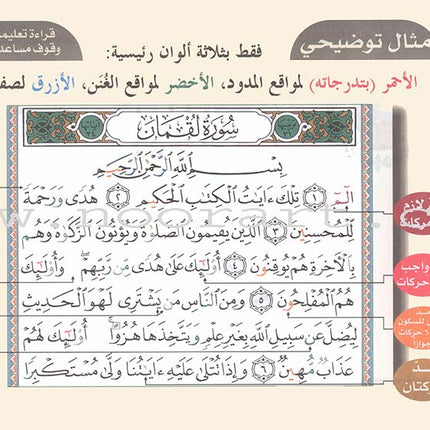 مثال توضيحي
قراءة تعليمية
وقوف مساعدة
فقط بثلاثة ألوان رئيسية:
الأحمر (بتدرجاته) لمواقع المدود، الأخضر لمواقع الغُنَن، الأزرق لصفـ
سُورَةُ لُقْمَانَ
بِسْمِ اللَّهِ الرَّحْمَٰنِ الرَّحِيمِ
الٓمٓ ١ تِلْكَ ءَايَٰتُ الْكِتَٰبِ الْحَكِيمِ ٢ هُدًى وَرَحْمَةً
لِّلْمُحْسِنِينَ ٣ الَّذِينَ يُقِيمُونَ الصَّلَوٰةَ وَيُؤْتُونَ الزَّكَوٰةَ وَهُم
بِالْءَاخِرَةِ هُمْ يُوقِنُونَ ٤ أُو۟لَٰٓئِكَ عَلَىٰ هُدًى مِّن رَّبِّهِمْ وَأُو۟لَٰٓئِكَ
هُمُ الْمُفْلِحُونَ ٥ وَمِنَ النَّاسِ مَن يَشْتَرِى لَهْوَ الْحَدِيثِ
لِيُضِلَّ عَن سَبِيلِ اللَّهِ بِغَيْرِ عِلْمٍ وَيَتَّخِذَهَا هُزُوًا أُو۟لَٰٓئِكَ لَهُمْ
عَذَابٌ مُّهِينٌ ٦ وَإِذَا تُتْلَىٰ عَلَيْهِ ءَايَٰتُنَا وَلَّىٰ مُسْتَكْبِرًا
لازم
حركات
واجب
حركات
للسكون
حركات
جوازاً
مد
حركتان